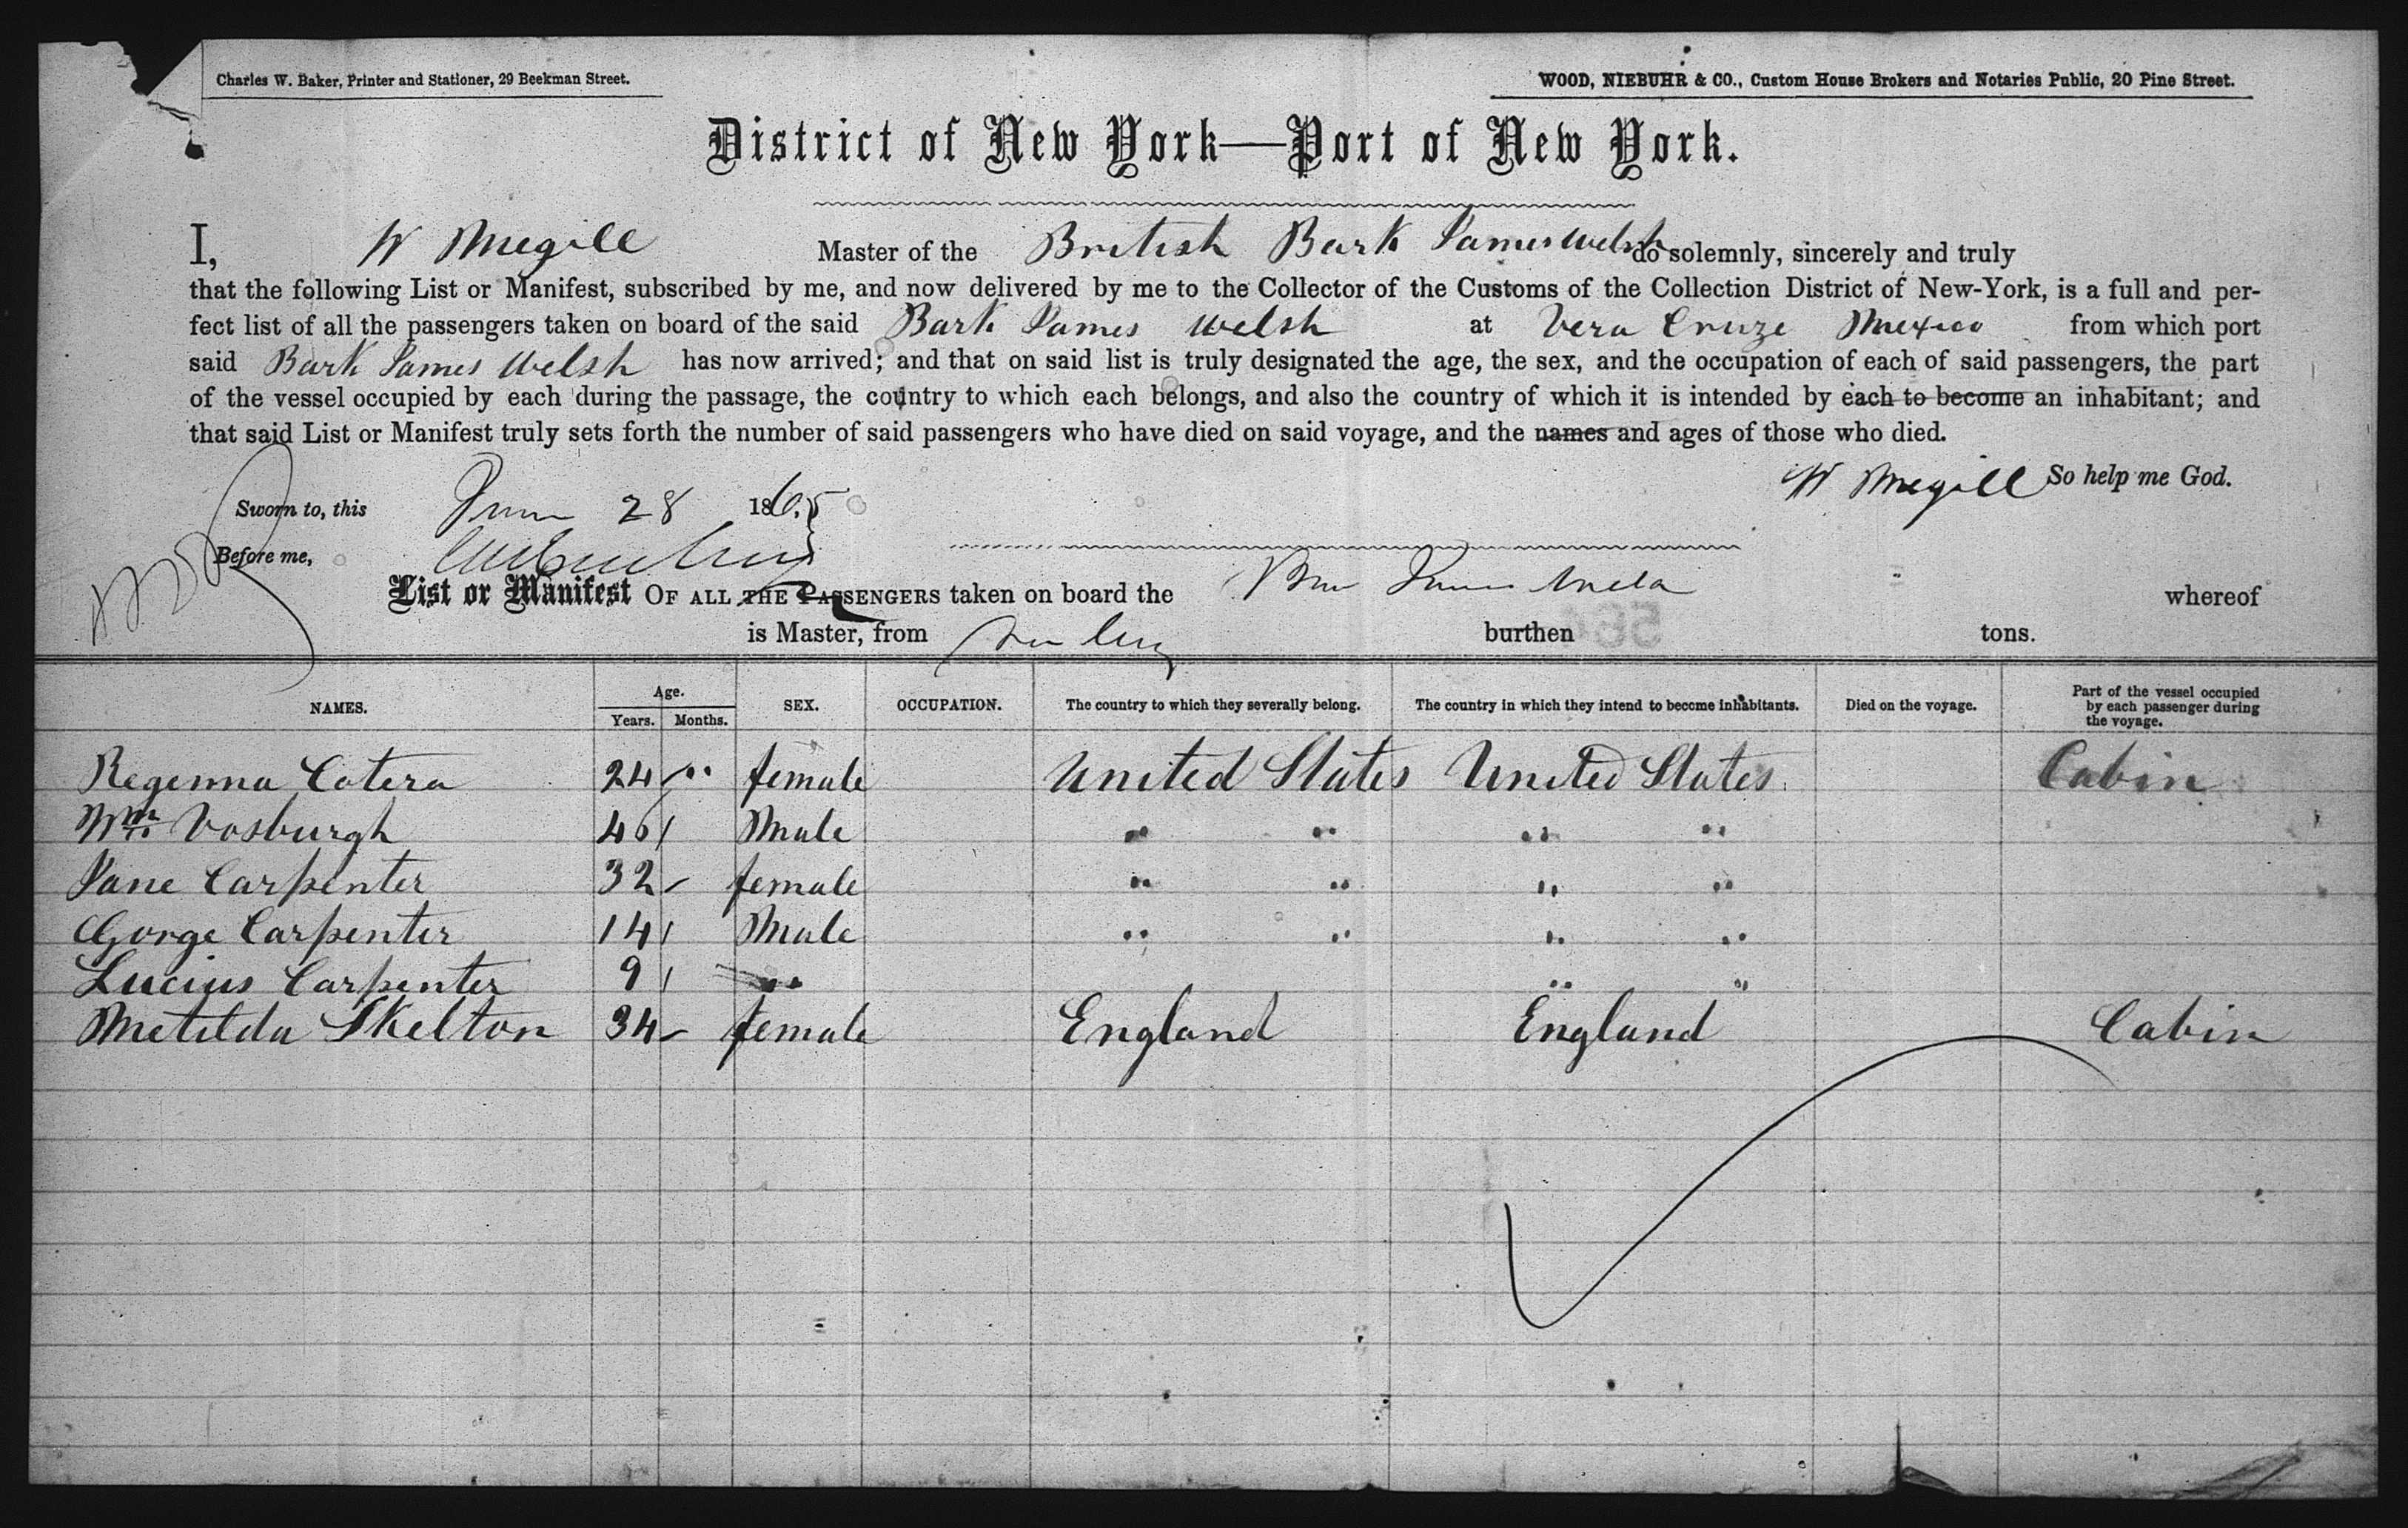 Charles W. Baker, Printer and Stationer, 29 Beekman Street.
WOOD, NIEBUHR & CO., Custom House Brokers and Notaries Public, 20 Pine Street.
District of New York—Port of New York.
I, W Megill Master of the British Bark James Welsh do solemnly, sincerely and truly
that the following List or Manifest, subscribed by me, and now delivered by me to the Collector of the Customs of the Collection District of New-York, is a full and per-
fect list of all the passengers taken on board of the said Bark James Welsh at Vera Cruze Mexico from which port
said Bark James Welsh has now arrived; and that on said list is truly designated the age, the sex, and the occupation of each of said passengers, the part
of the vessel occupied by each during the passage, the country to which each belongs, and also the country of which it is intended by each to become an inhabitant; and
that said List or Manifest truly sets forth the number of said passengers who have died on said voyage, and the names and ages of those who died.
W Megill So help me God.
Sworn to, this June 28 1865
Before me,
List or Manifest OF ALL THE PASSENGERS taken on board the whereof
is Master, from burthen tons.
NAMES. Age. Years. Months. SEX. OCCUPATION. The country to which they severally belong. The country in which they intend to become inhabitants. Died on the voyage. Part of the vessel occupied by each passenger during the voyage.
Regenna Cotera 24 " female United States United States Cabin
Wm Vosburgh 46 Male " " " "
Jane Carpenter 32 - female " " " "
Gorge Carpenter 14 Male " " " "
Lucius Carpenter 9 " " "
Metilda Skelton 34 - female England England Cabin